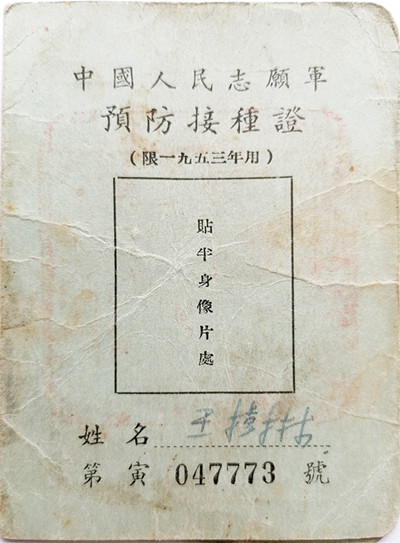 中國人民志願軍
預防接種證
(限一九五三年用)
貼半身像片處
姓名 王樹林
第寅 047773 號